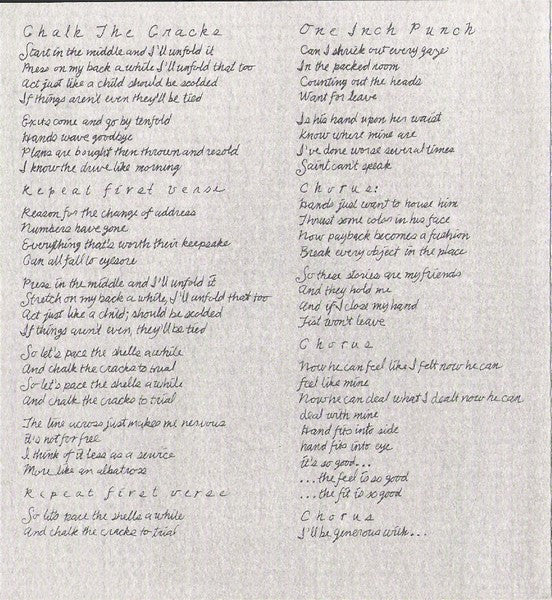 Chalk The Cracks
Start in the middle and I'll unfold it
Press on my back a while I'll unfold that too
Act just like a child should be scolded
If things aren't even they'll be tied
Exits come and go by tenfold
Hands wave goodbye
Plans are bought then thrown and resold
I know the drive like morning
Repeat first verse
Reason for the change of address
Numbers have gone
Everything that's worth their keepsake
Can all fall to eyesore
Press in the middle and I'll unfold it
Stretch on my back a while, I'll unfold that too
Act just like a child; should be scolded
If things aren't even, they'll be tied
So let's pace the shells a while
And chalk the cracks to trial
So let's pace the shells a while
And chalk the cracks to trial
The line across just makes me nervous
it's not for free
I think of it less as a service
More like an albatross
Repeat first verse
So lets pace the shells a while
And chalk the cracks to trial
One Inch Punch
Can I shriek out every gaze
In the packed room
Counting out the heads
Want for leave
Is his hand upon her waist
Know where mine are
I've done worse several times
Saint can't speak
Chorus:
Hands just want to house him
Thrust some color in his face
Now payback becomes a fashion
Break every object in the place
So these stories are my friends
And they hold me
And if I close my hand
Fist won't leave
Chorus
Now he can feel like I felt now he can
feel like mine
Now he can deal what I dealt now he can
deal with mine
Hand fits into side
hand fits into eye
it's so good...
...the feel is so good
...the fit is so good
Chorus
I'll be generous with...